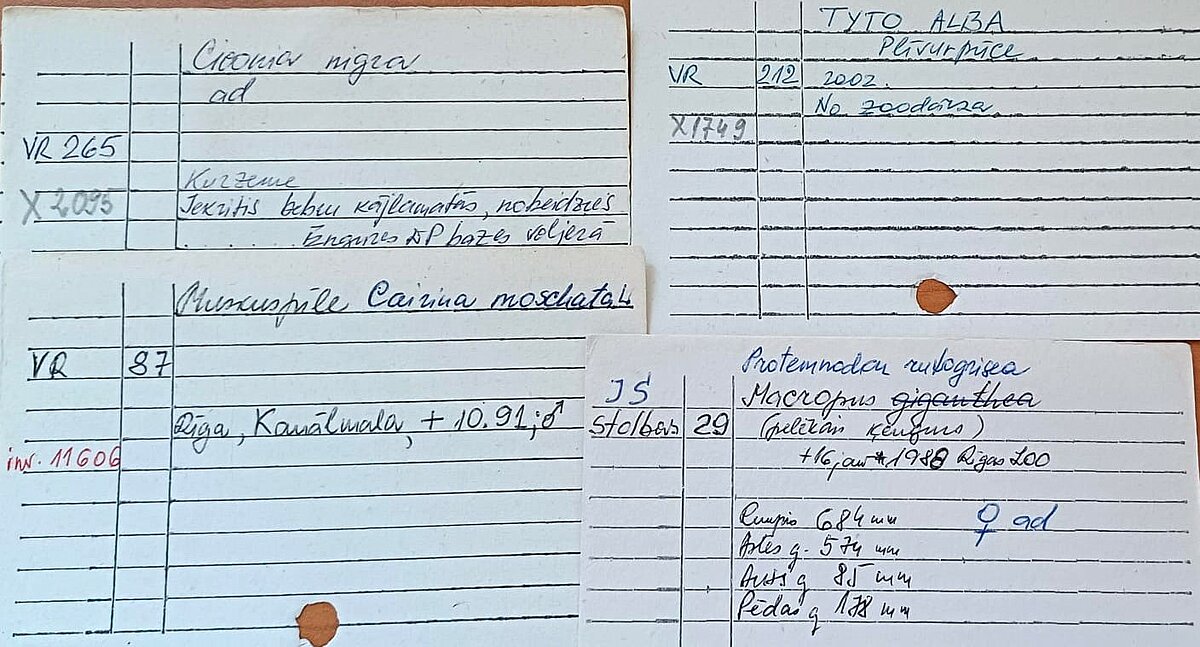 Ciconia nigra
ad
VR 265
Kurzeme
X 2095
Iekritis bebru kājlamatās, nobeidzies
Engures DP bazes voljerā
TYTO ALBA
Plīvurpūce
VR 212 2002.
No zoodārza
X1749
Muskuspīle Cairina moschata L
VR 87
Rīga, Kanālmala, + 10.91; ♂
inv. 11606
Protemnodon rufogrisea
IS Macropus giganthea
Stolbas 29 (pelēkais ķengurs)
+16 jan 1988 Rīgas ZOO
Rumpis 684 mm ♀ ad
Astes g. 574 mm
Auss g 85 mm
Pēdas g 178 mm